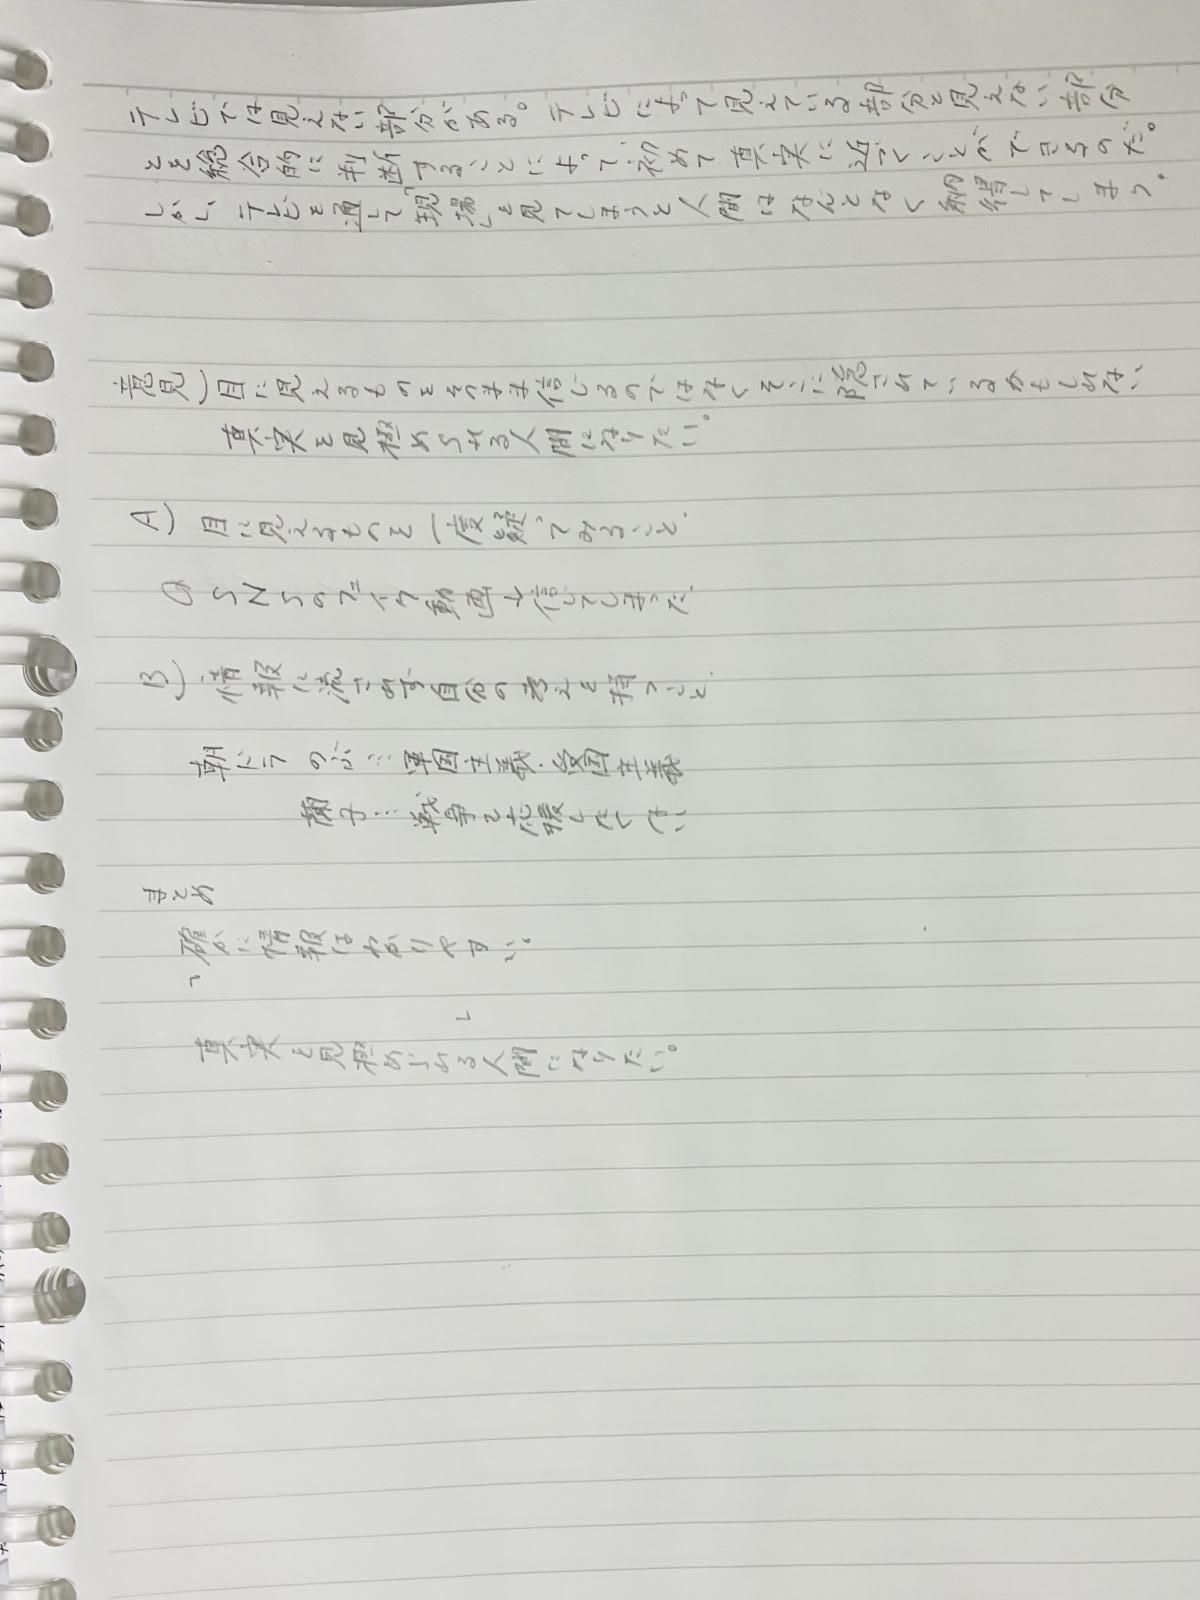 テレビでは見えない部分がある。テレビによって見えている部分と見えない部分
とを総合的に判断することによって、初めて真実に近づくことができるのだ。
しかし、テレビを通して「現場」を見てしまうと人間はなんとなく納得してしまう。
意見）目に見えるものをそのまま信じるのではなくそこに隠されているかもしれない
真実を見極められる人間になりたい。
A） 目に見えるものを一度疑ってみること。
SNSのフェイク動画を信じてしまった。
B） 情報に流されず自分の考えを持つこと。
朝ドラ のぶ…軍国主義・愛国主義
蘭子…戦争を応援したくない
まとめ
確かに情報はわかりやすい。
「
」
真実を見極められる人間になりたい。